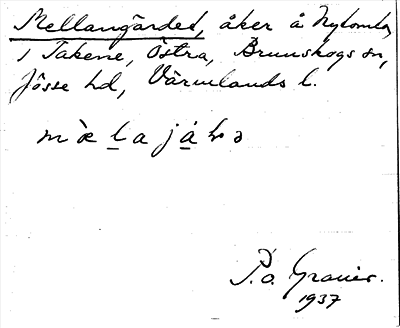 Mellangärdet, åker å Nytomta
i Takene, Östra, Brunskogs sn,
Jösse hd, Värmlands l.
P.O. Graner.
1937